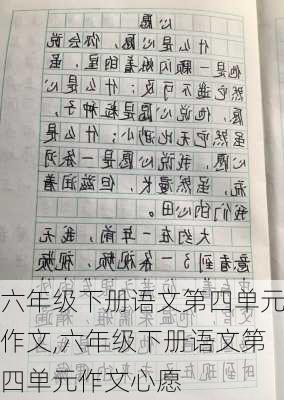 心愿
什么是心愿，你会说
他是一颗闪烁着的星，虽
然它遥不可及；什么是心
愿，他说心愿是粒种子，
虽然它无比的小；什么是
心愿，我说心愿是一条河
流，虽然漫长，但滋润着
我们的心田。
大约在一年前，我无
意看到了一条视频，视频
六年级下册语文第四单元
作文,六年级下册语文第
四单元作文心愿